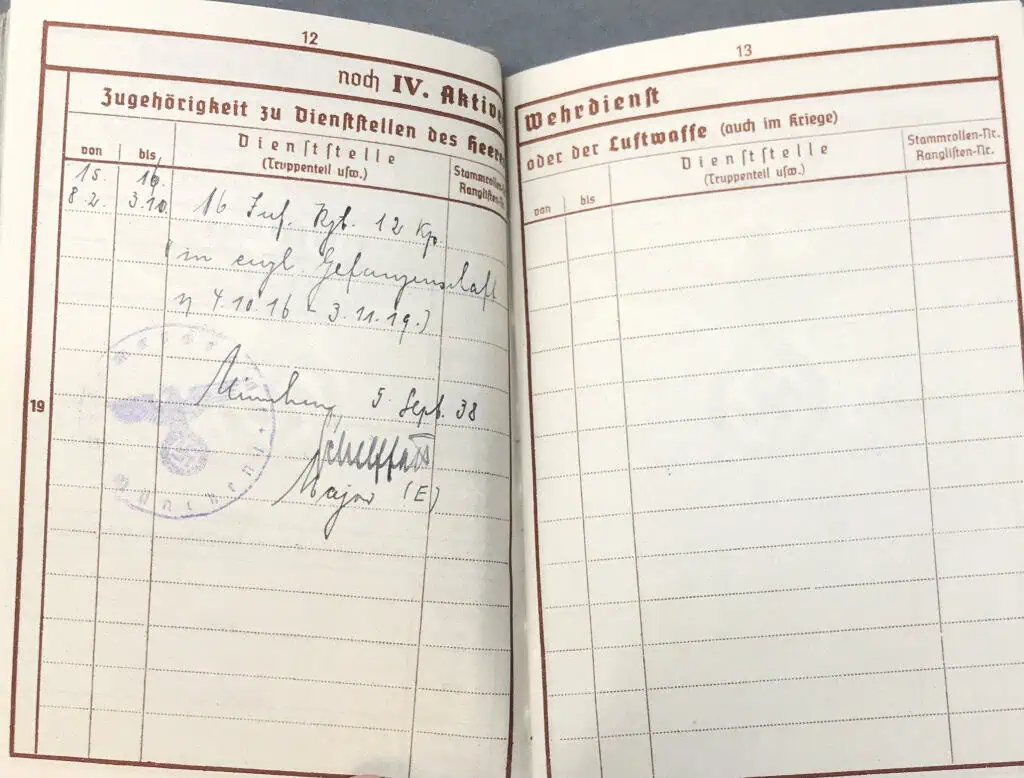 12
noch IV. Aktive
Zugehörigkeit zu Dienststellen des Heere
von bis Dienststelle
(Truppenteil usw.) Stammrollen-
Ranglisten-Nr.
15. 16.
8.2. 3.10. 16 Inf. Rgt. 12 Kp.
(in engl. Gefangenschaft
4.10.16 - 3.11.19.)
19
München, 5 Sept. 38
Major (E)
München 1
13
Wehrdienst
oder der Luftwaffe (auch im Kriege)
von bis Dienststelle
(Truppenteil usw.) Stammrollen-Nr.
Ranglisten-Nr.